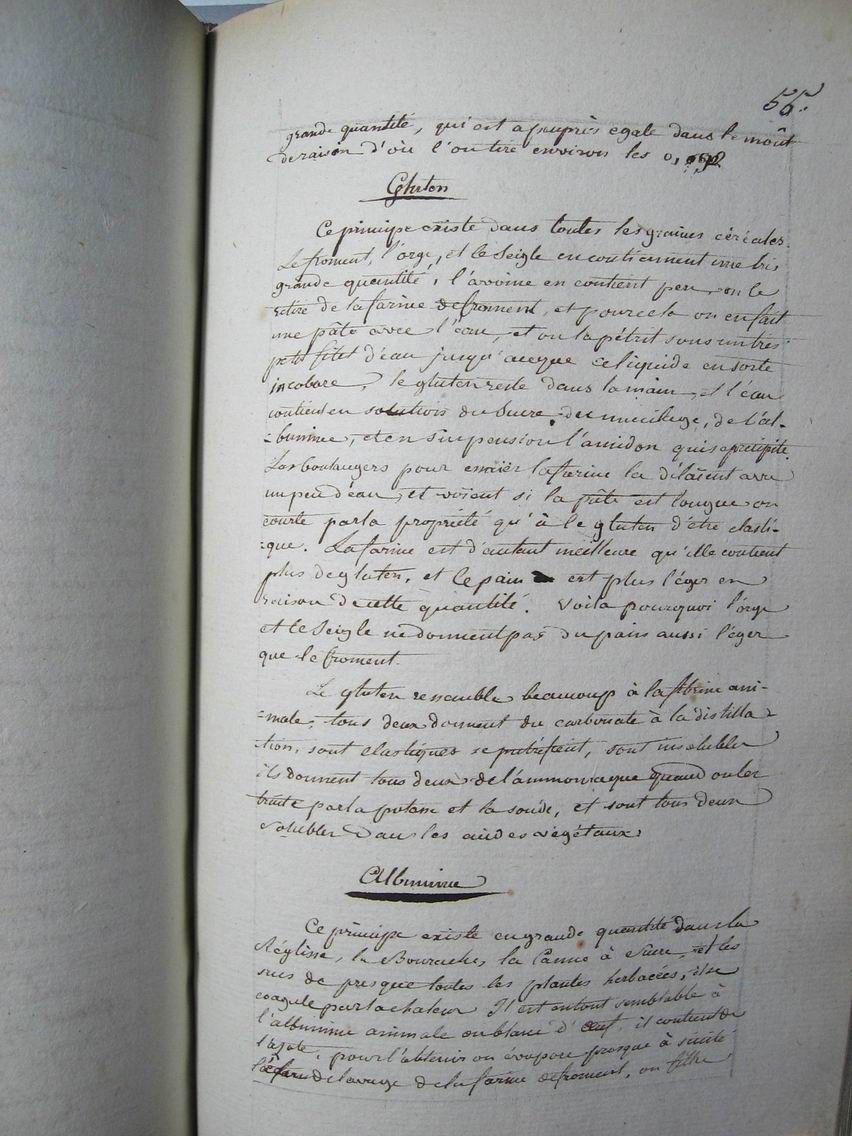 56.
grande quantité, qui est apeuprès egale dans le moût
de raisin d'où l'on tire environ les 0,
Gluten
Ce principe existe dans toutes les graines céréales.
Le froment, l'orge, et le seigle en contiennent une
grande quantité, l'avoine en contient peu, on le
retire de la farine de froment, et pour cela on en fait
une pâte avec l'eau, et on la pétrit sous un très
petit filet d'eau jusqu'aceque ce liquide en sorte
incolore, le gluten reste dans la main, et l'eau
contient en solution du sucre, du mucilage, de l'al-
-bumine, et en suspension l'amidon qui se précipite.
Les boulangers pour essaier la farine la délaient avec
un peu d'eau, et voient si la pâte est longue ou
courte par la propriété qu'à le gluten d'être elasti-
-que. La farine est d'autant meilleure qu'elle contient
plus de gluten, et le pain est plus léger en
raison de cette quantité. Voila pourquoi l'orge
et le seigle ne donnent pas du pain aussi léger
que le froment.
Le gluten ressemble beaucoup à la fibrine ani-
-male, tous deux donnent du carbonate à la distilla-
-tion, sont elastiques se putréfient, sont insolubles
ils donnent tous deux de l'ammoniaque quand on les
traite par la potasse et la soude, et sont tous deux
solubles dans les acides végétaux.
Albumine
Ce principe existe en grande quantité dans la
Réglisse, la Bourache, la Canne à sucre, et les
sucs de presque toutes les plantes herbacées, il se
coagule par la chaleur. Il est en tout semblable à
l'albumine animale ou blanc d'oeuf, il contient de
l'azote, pour l'obtenir on évapore presque à siccité
de lavage de la farine de froment, on filtre